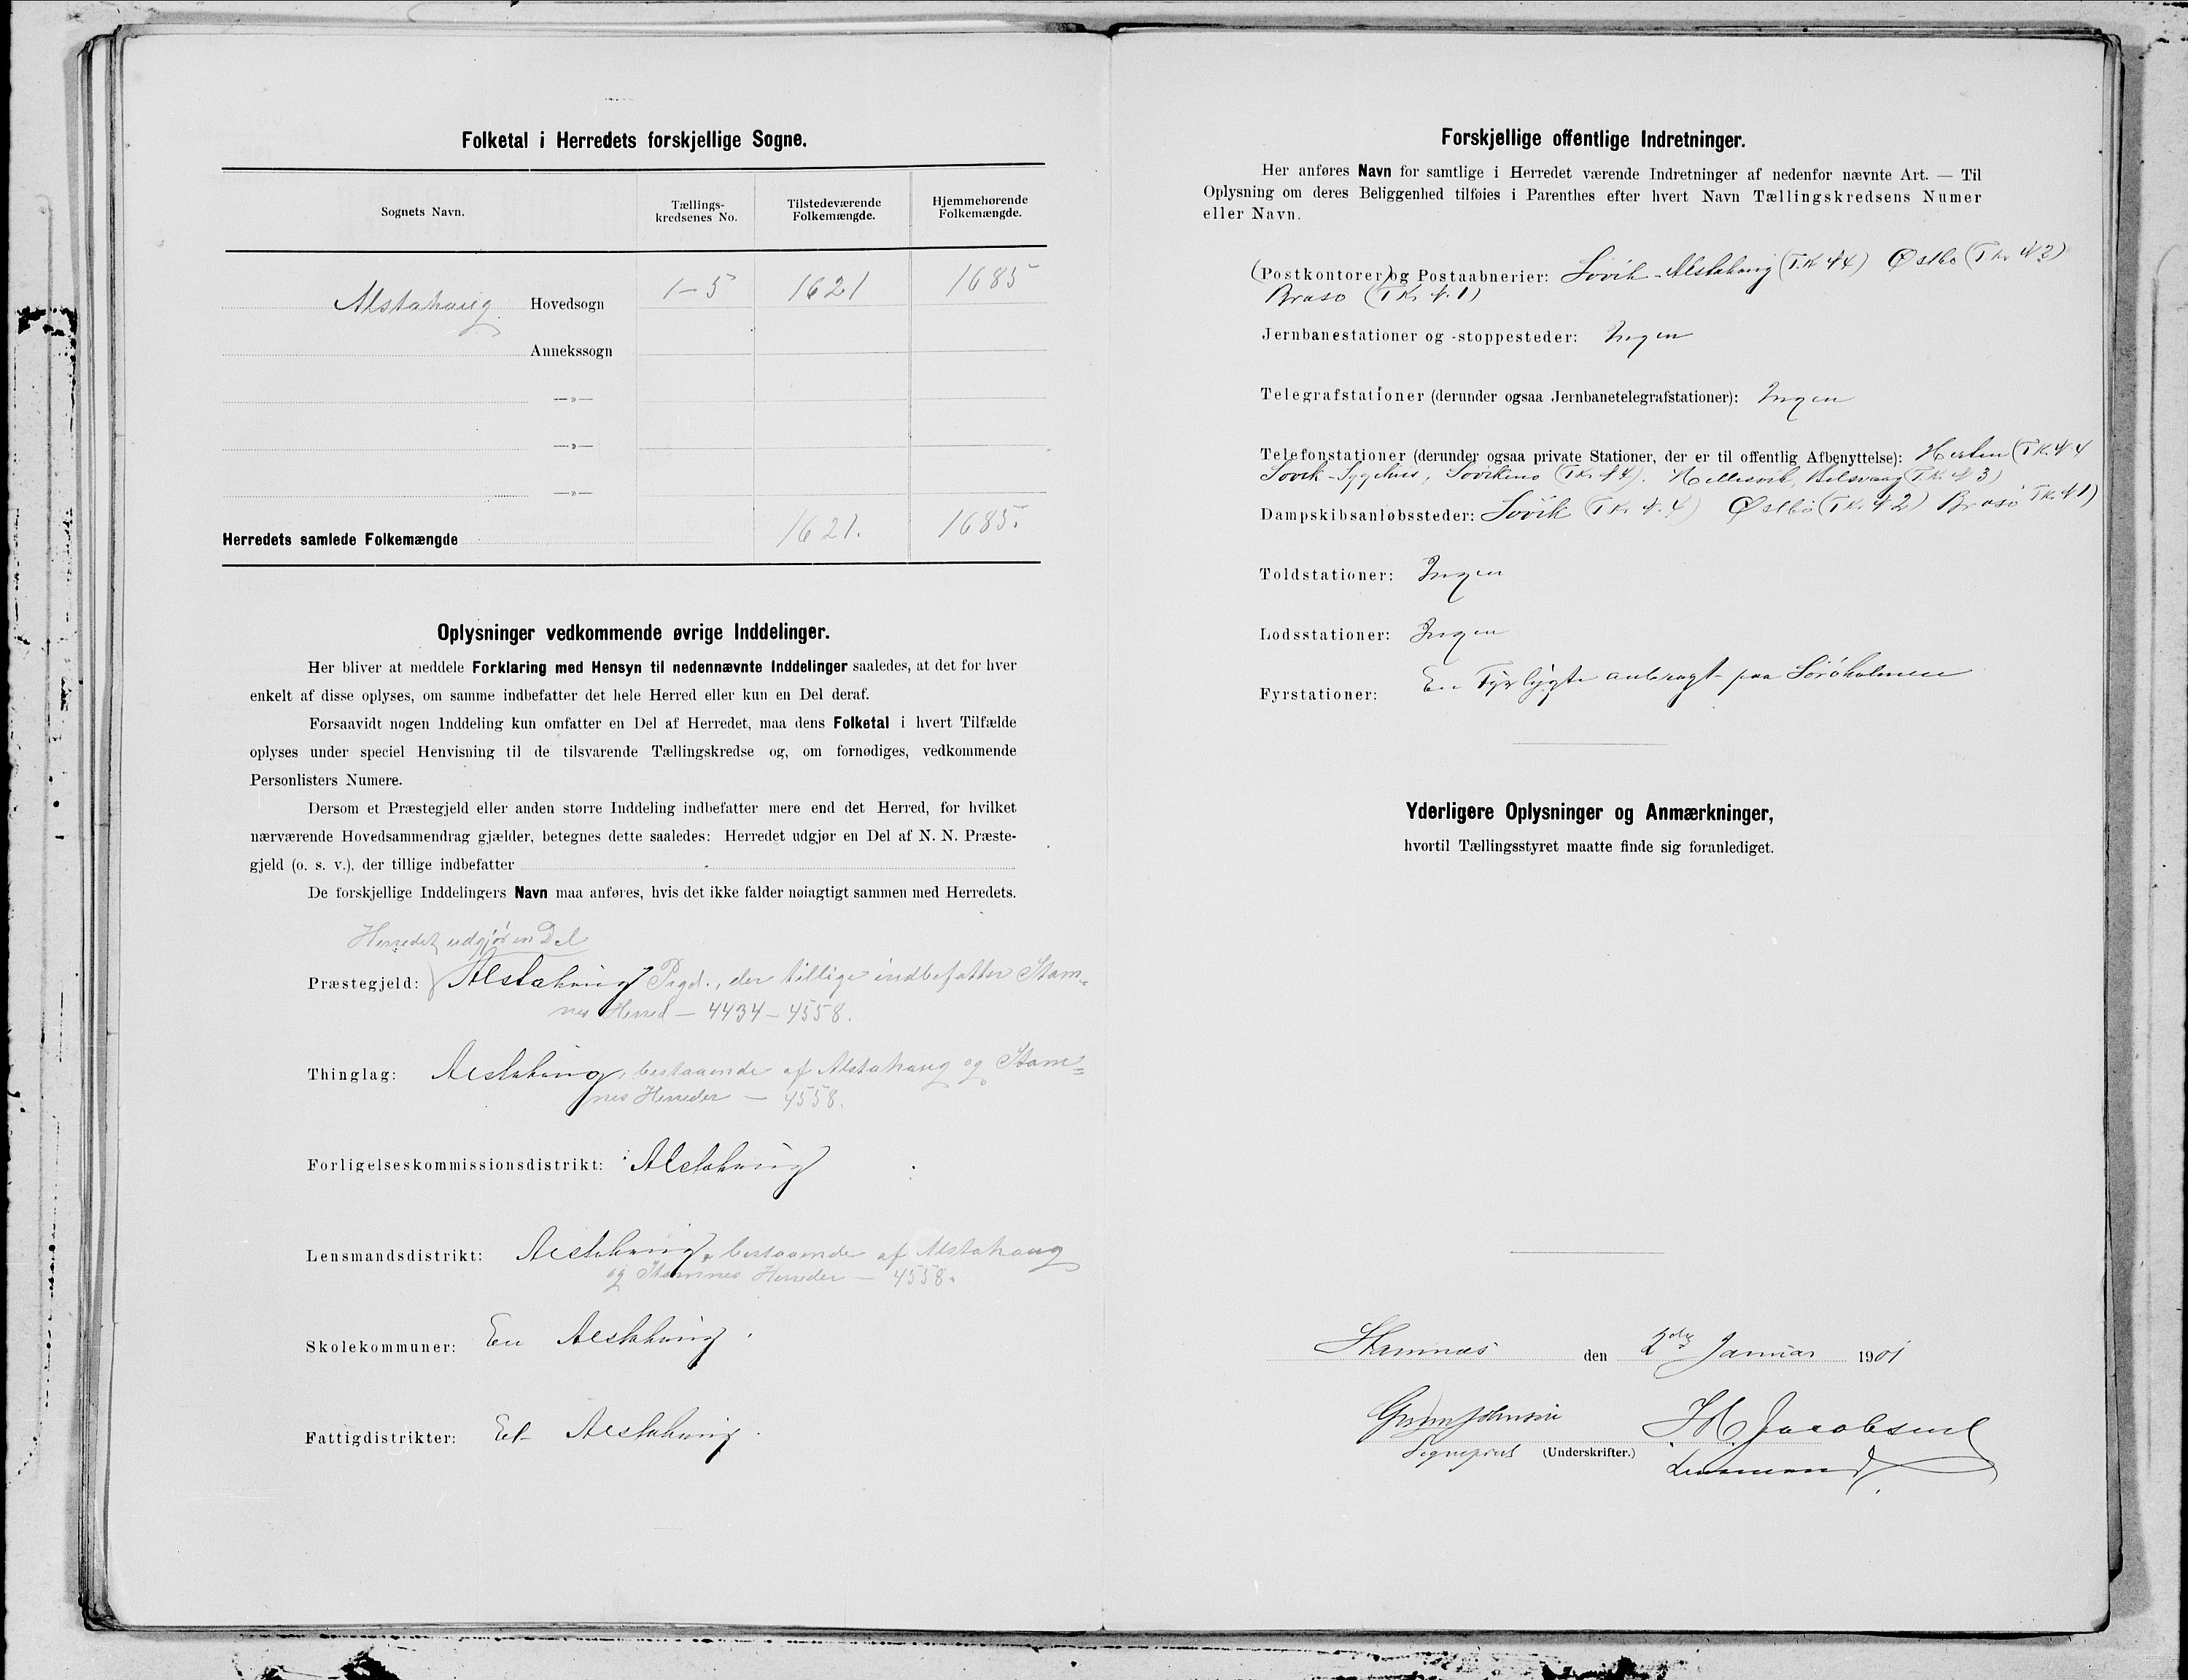 Folketal i Herredets forskjellige Sogne.
Sognets Navn.
Tællings-
kredsenes No.
Tilstedeværende
Folkemængde.
Hjemmehørende
Folkemængde.
Alstahaug Hovedsogn 1-5 1621 1685
Annekssogn
—»—
—»—
—»—
Herredets samlede Folkemængde 1621. 1685.
Oplysninger vedkommende øvrige Inddelinger.
Her bliver at meddele Forklaring med Hensyn til nedennævnte Inddelinger saaledes, at det for hver
enkelt af disse oplyses, om samme indbefatter det hele Herred eller kun en Del deraf.
Forsaavidt nogen Inddeling kun omfatter en Del af Herredet, maa dens Folketal i hvert Tilfælde
oplyses under speciel Henvisning til de tilsvarende Tællingskredse og, om fornødiges, vedkommende
Personlisters Numere.
Dersom et Præstegjeld eller anden større Inddeling indbefatter mere end det Herred, for hvilket
nærværende Hovedsammendrag gjælder, betegnes dette saaledes: Herredet udgjør en Del af N. N. Præste-
gjeld (o. s. v.), der tillige indbefatter
De forskjellige Inddelingers Navn maa anføres, hvis det ikke falder nøiagtigt sammen med Herredets.
Herredet udgjør en Del
Præstegjeld: Alstahaug Prgd., der tillige indbefatter Stam-
nes Herred — 4434 — 4558.
Thinglag: Alstahaug, bestaaende af Alstahaug og Stam=
nes Herreder — 4558.
Forligelseskommissionsdistrikt: Alstahaug
Lensmandsdistrikt: Alstahaug, bestaaende af Alstahaug
og Stamnes Herreder — 4558.
Skolekommuner: En Alstahaug.
Fattigdistrikter: Et Alstahaug.
Forskjellige offentlige Indretninger.
Her anføres Navn for samtlige i Herredet værende Indretninger af nedenfor nævnte Art. — Til
Oplysning om deres Beliggenhed tilføies i Parenthes efter hvert Navn Tællingskredsens Numer
eller Navn.
(Postkontorer) og Postaabnerier: Søvik - Alstahaug (T.K № 4) Østbø (T Kr № 2)
Brasø (T Kr №. 1)
Jernbanestationer og -stoppesteder: Ingen
Telegrafstationer (derunder ogsaa Jernbanetelegrafstationer): Ingen
Telefonstationer (derunder ogsaa private Stationer, der er til offentlig Afbenyttelse): (T K. № 4
Søvik - Sygehus, (T Kr № 4). (T. K. № 3)
Dampskibsanløbssteder: Søvik (T Kr №. 4) Østbø (T K. № 2) Brasø T Kr № 1)
Toldstationer: Ingen
Lodsstationer: Ingen
Fyrstationer: En Fyrlygte anbragt paa
Yderligere Oplysninger og Anmærkninger,
hvortil Tællingsstyret maatte finde sig foranlediget.
Stamnes den 2den Januar 1901
Jacobsen
Sogneprest (Underskrifter.) Lensmand